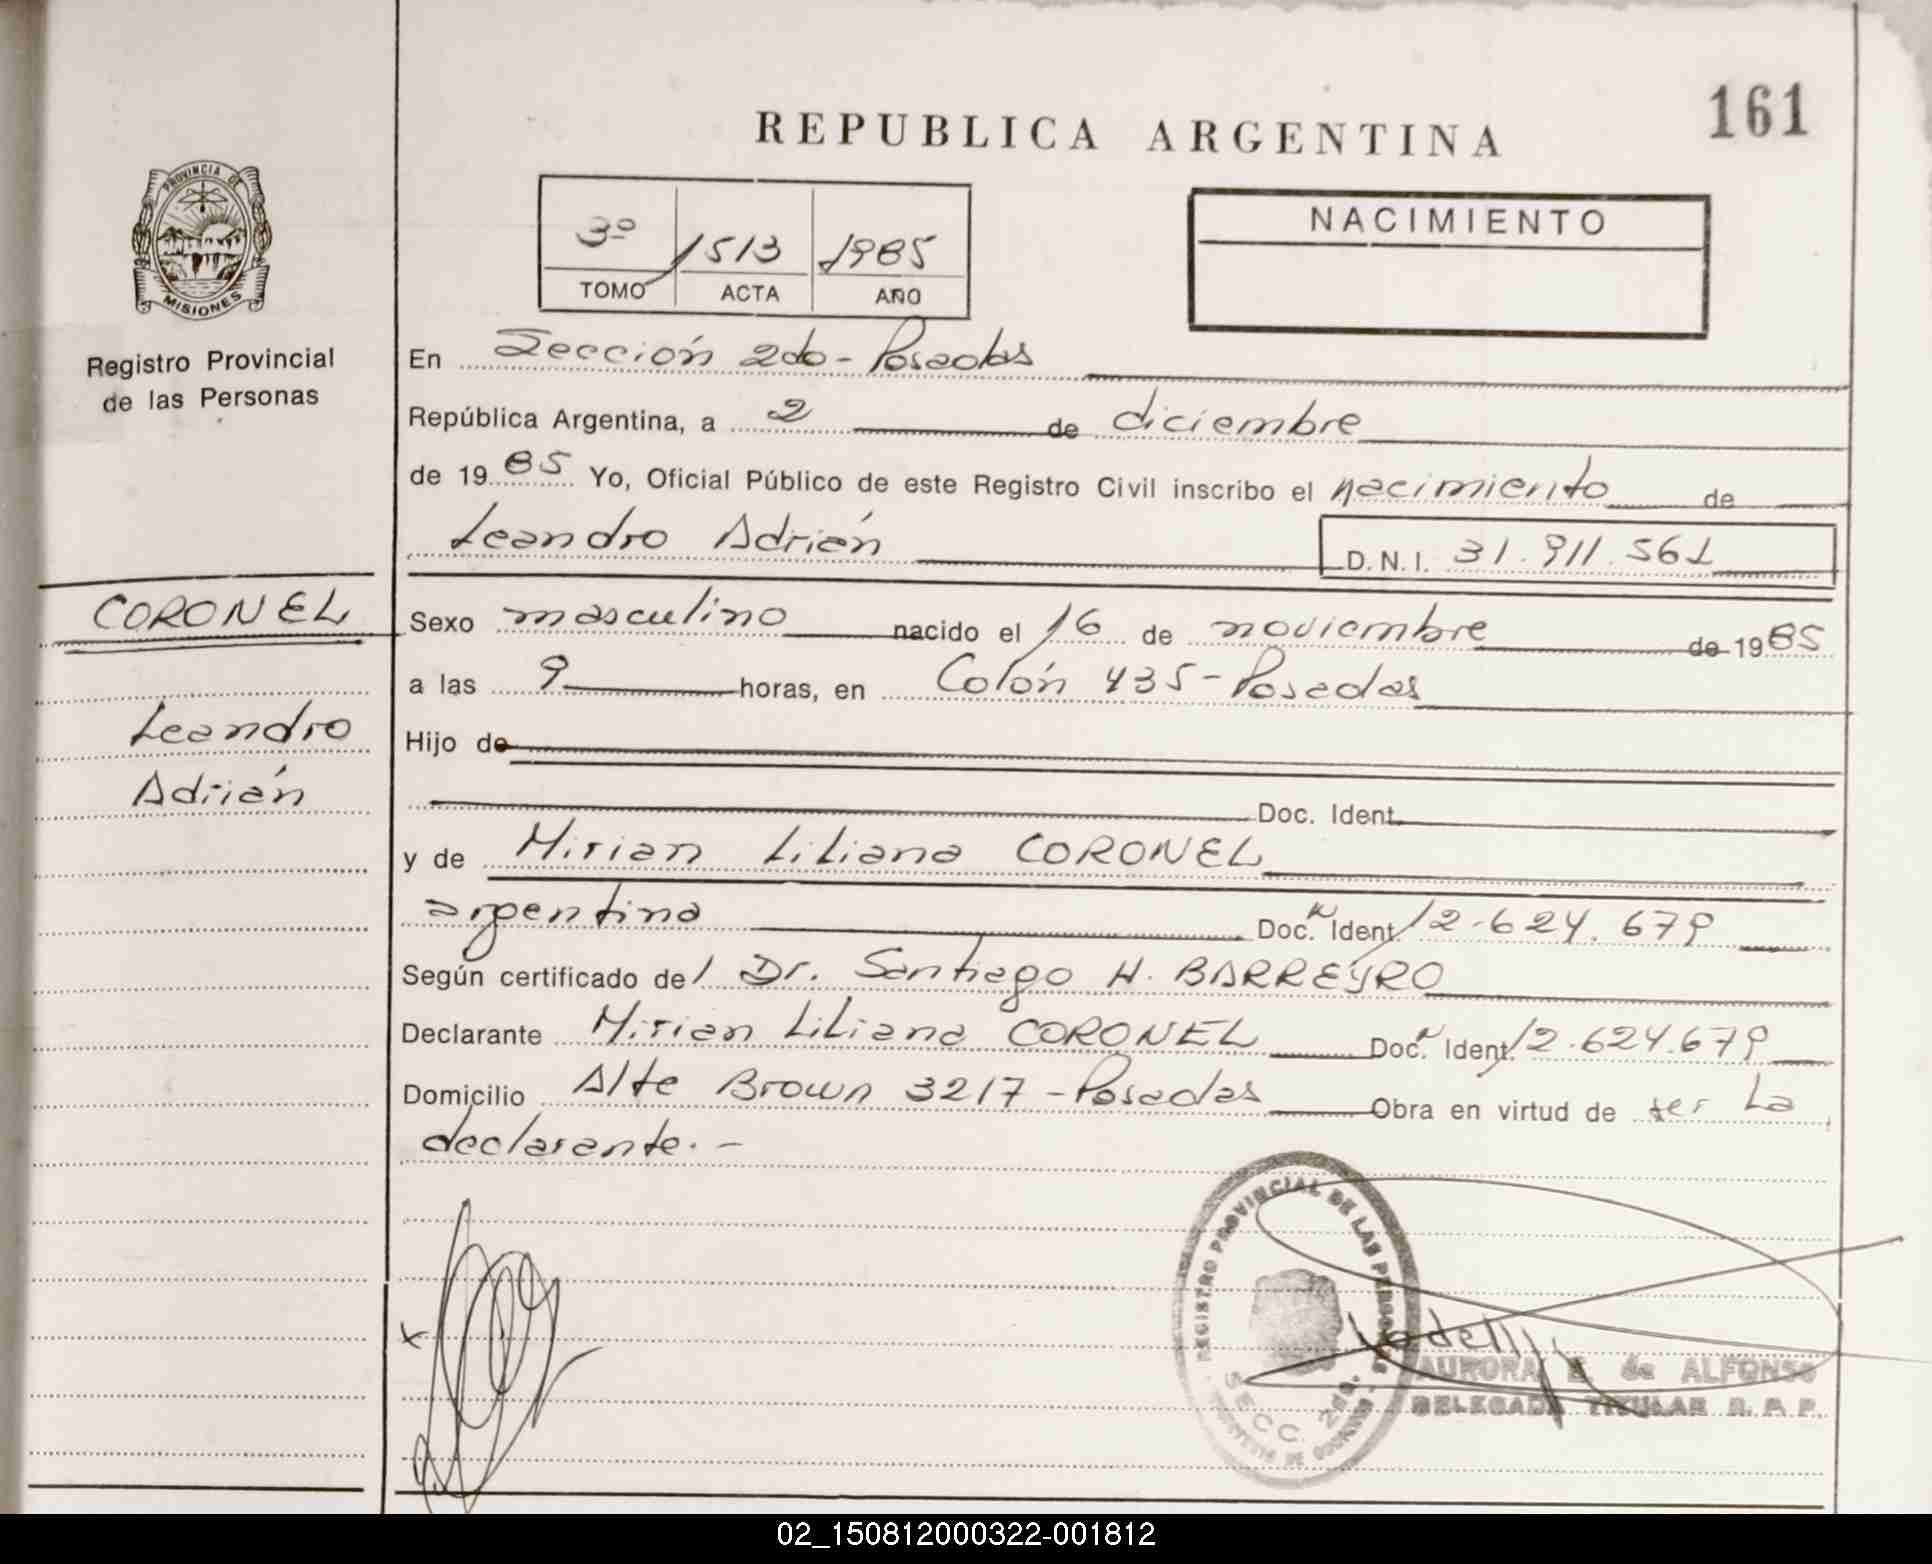 161
REPUBLICA ARGENTINA
PROVINCIA DE
MISIONES
Registro Provincial
de las Personas
NACIMIENTO
3º 1513 1985
TOMO ACTA AÑO
En Sección 2do - Posadas
República Argentina, a 2 de diciembre
de 1985 Yo, Oficial Público de este Registro Civil inscribo el nacimiento de
Leandro Adrián D.N.I. 31.911.561
CORONEL
Leandro
Adrián
Sexo masculino nacido el 16 de noviembre de 1985
a las 9 horas, en Colón 435 - Posadas
Hijo de
Doc. Ident.
y de Mirian Liliana CORONEL
argentina Doc. Ident. 12.624.679
Según certificado del Dr. Santiago H. BARREYRO
Declarante Mirian Liliana CORONEL Doc. Ident. 12.624.679
Domicilio Alte Brown 3217 - Posadas Obra en virtud de ser la
declarante. -
x
REGISTRO PROVINCIAL DE LAS PERSONAS
SECC. 2da.
AURORA E. de ALFONSO
DELEGADA TITULAR R. P. P.
02_150812000322-001812